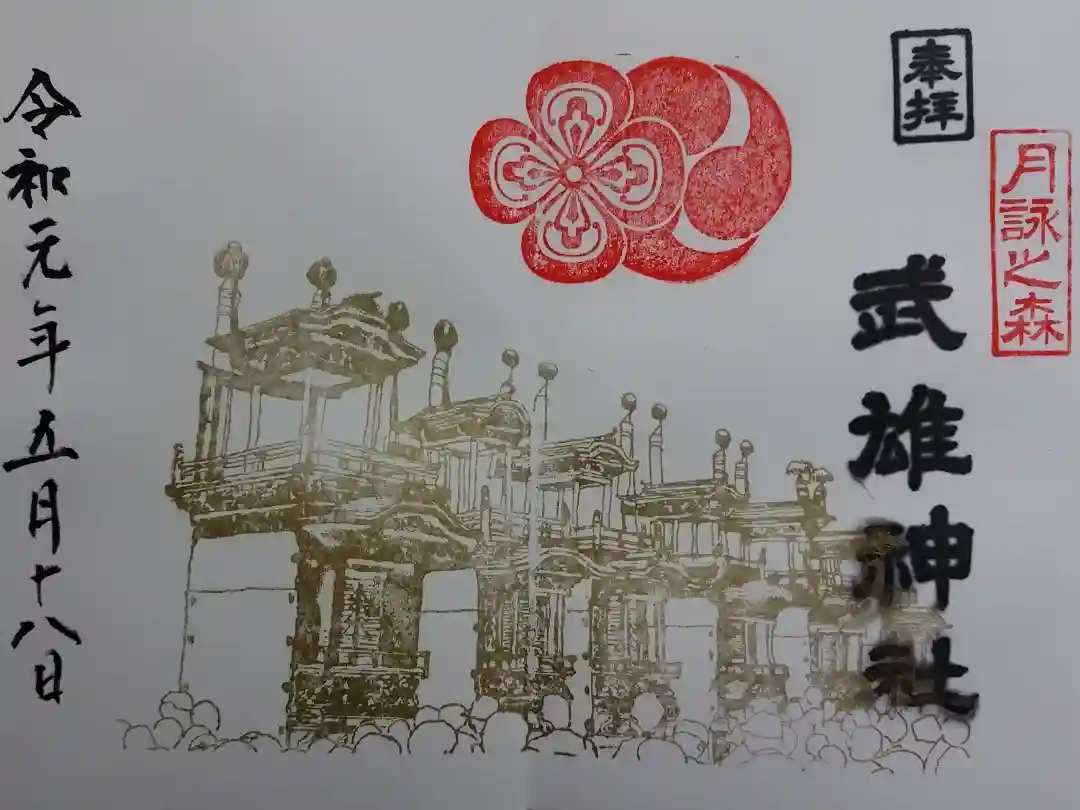 奉拝
月詠之森
武雄神社
令和元年五月十八日